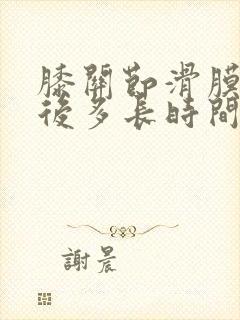 膝關節滑膜
後多長時間
謝晨